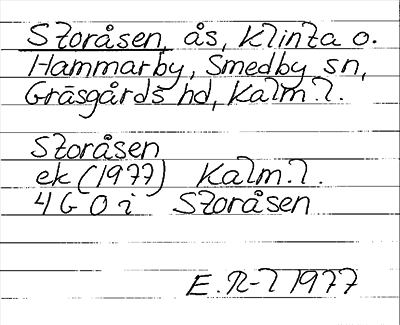 Storåsen, ås, Klinta o.
Hammarby, Smedby sn,
Gräsgårds hd, Kalm. l.
Storåsen
ek (1977) Kalm. l.
4 G 0 i Storåsen
E. R-l 1977